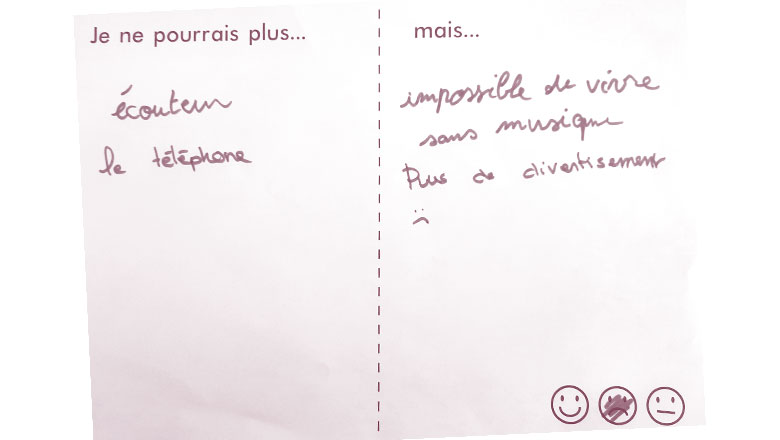 Je ne pourrais plus...
écouteur
le téléphone
mais...
impossible de vivre
sans musique
Plus de divertisement